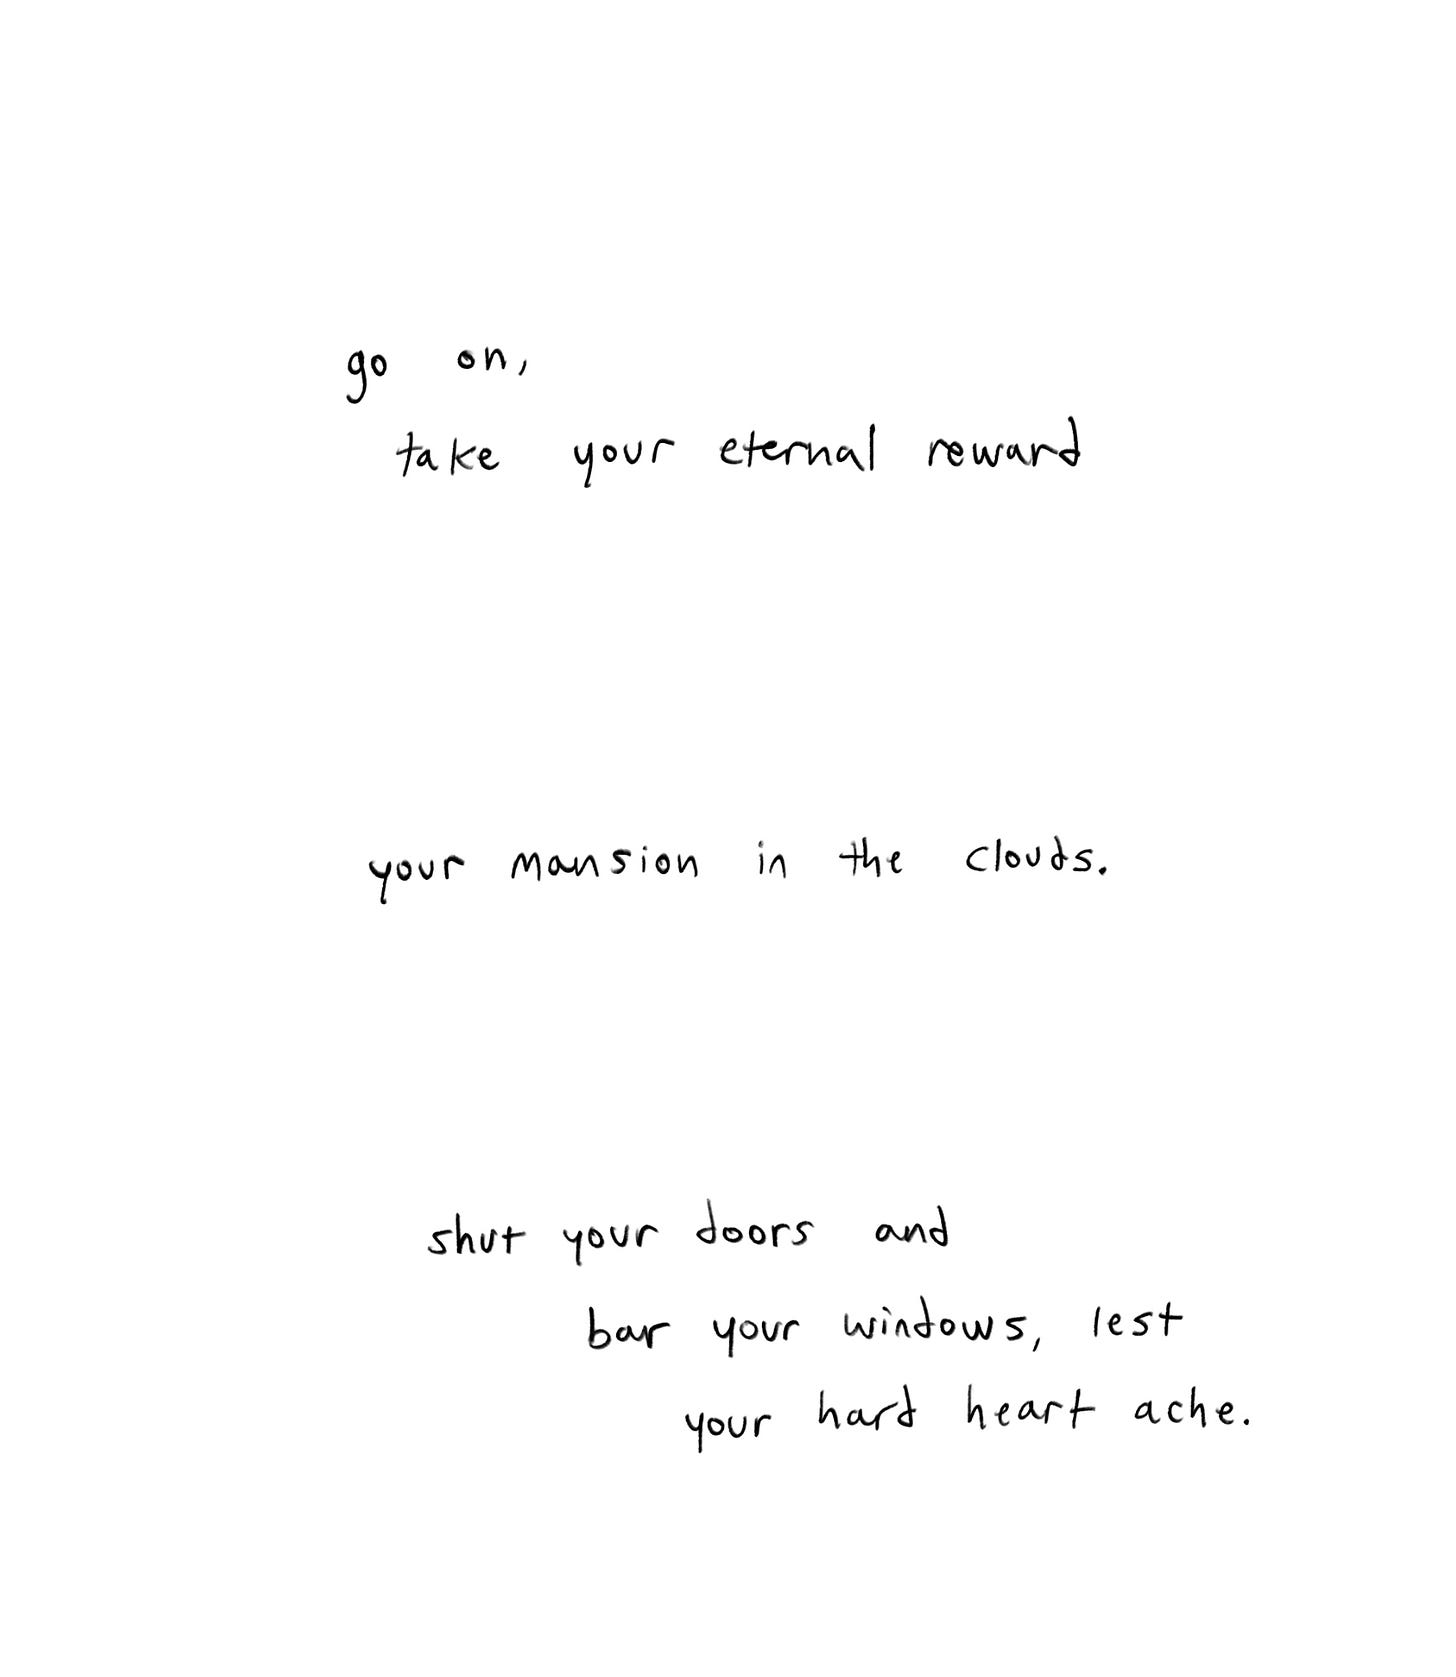 go on,
take your eternal reward
your mansion in the clouds.
shut your doors and
bar your windows, lest
your hard heart ache.